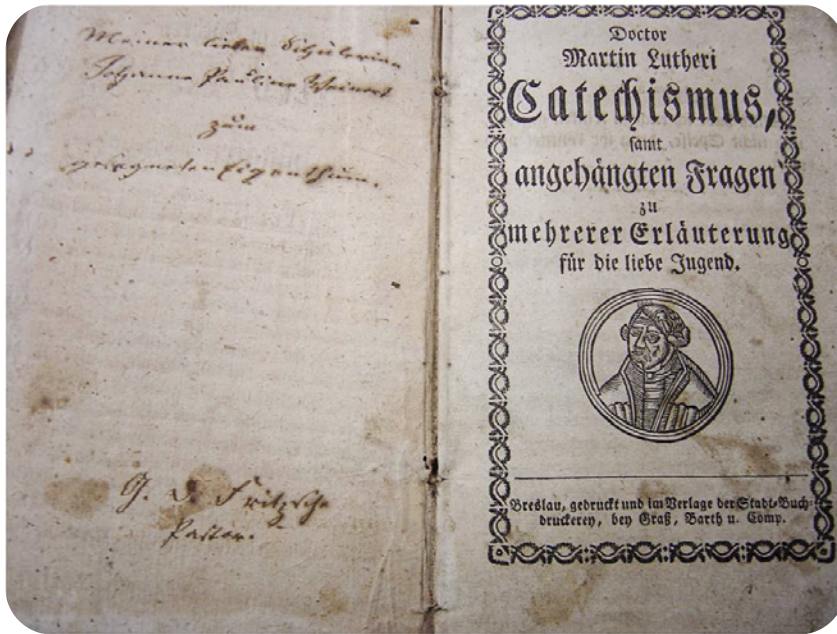 Meiner lieben Schülerinn
Johanne Pauline Weinert
zum
gesegneten Eigenthum.
G. D. Fritzsche
Pastor.
Doctor
Martin Lutheri
Catechismus,
samt
angehängten Fragen
zu
mehrerer Erläuterung
für die liebe Jugend.
Breslau, gedruckt und im Verlage der Stadt-Buch-
druckerey, bey Graß, Barth u. Comp.